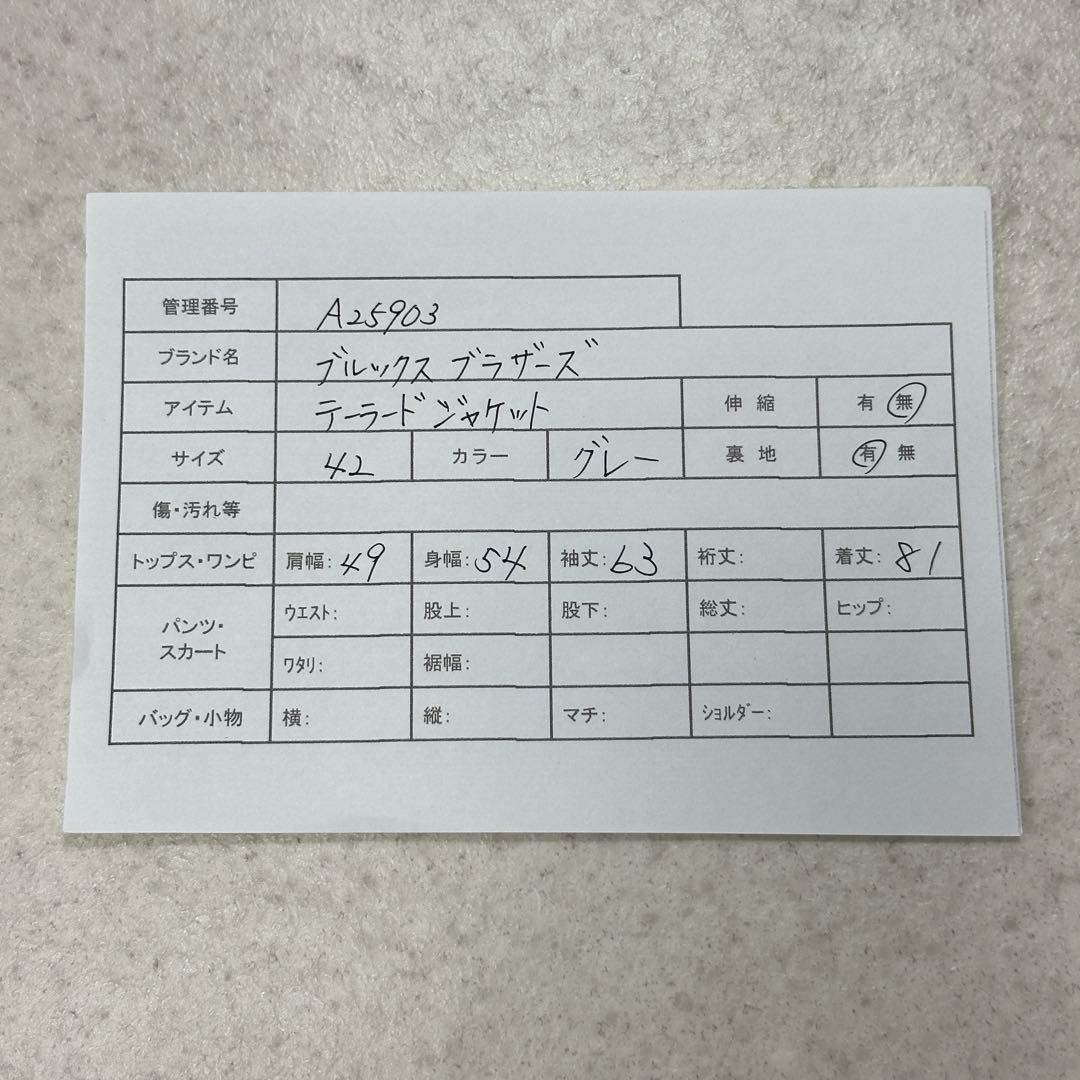 管理番号 A25903
ブランド名 ブルックス ブラザーズ
アイテム テーラード ジャケット 伸縮 有 無
サイズ 42 カラー グレー 裏地 有 無
傷・汚れ等
トップス・ワンピ 肩幅: 49 身幅: 54 袖丈: 63 裄丈: 着丈: 81
パンツ・スカート ウエスト: 股上: 股下: 総丈: ヒップ:
ワタリ: 裾幅:
バッグ・小物 横: 縦: マチ: ショルダー: